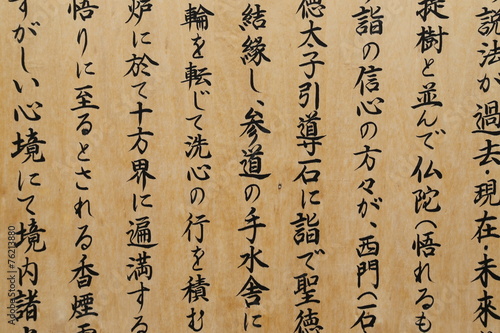 説法か過去・現在・未来
提樹と並んで仏陀(悟れるも
詣の信心の方々が、西門(石
徳太子引導石に詣で聖徳
結縁し、参道の手水舎に
輪を転じて洗心の行を積む
炉に於て十方界に遍満する
悟りに至るとされる香煙
すがしい心境にて境内諸